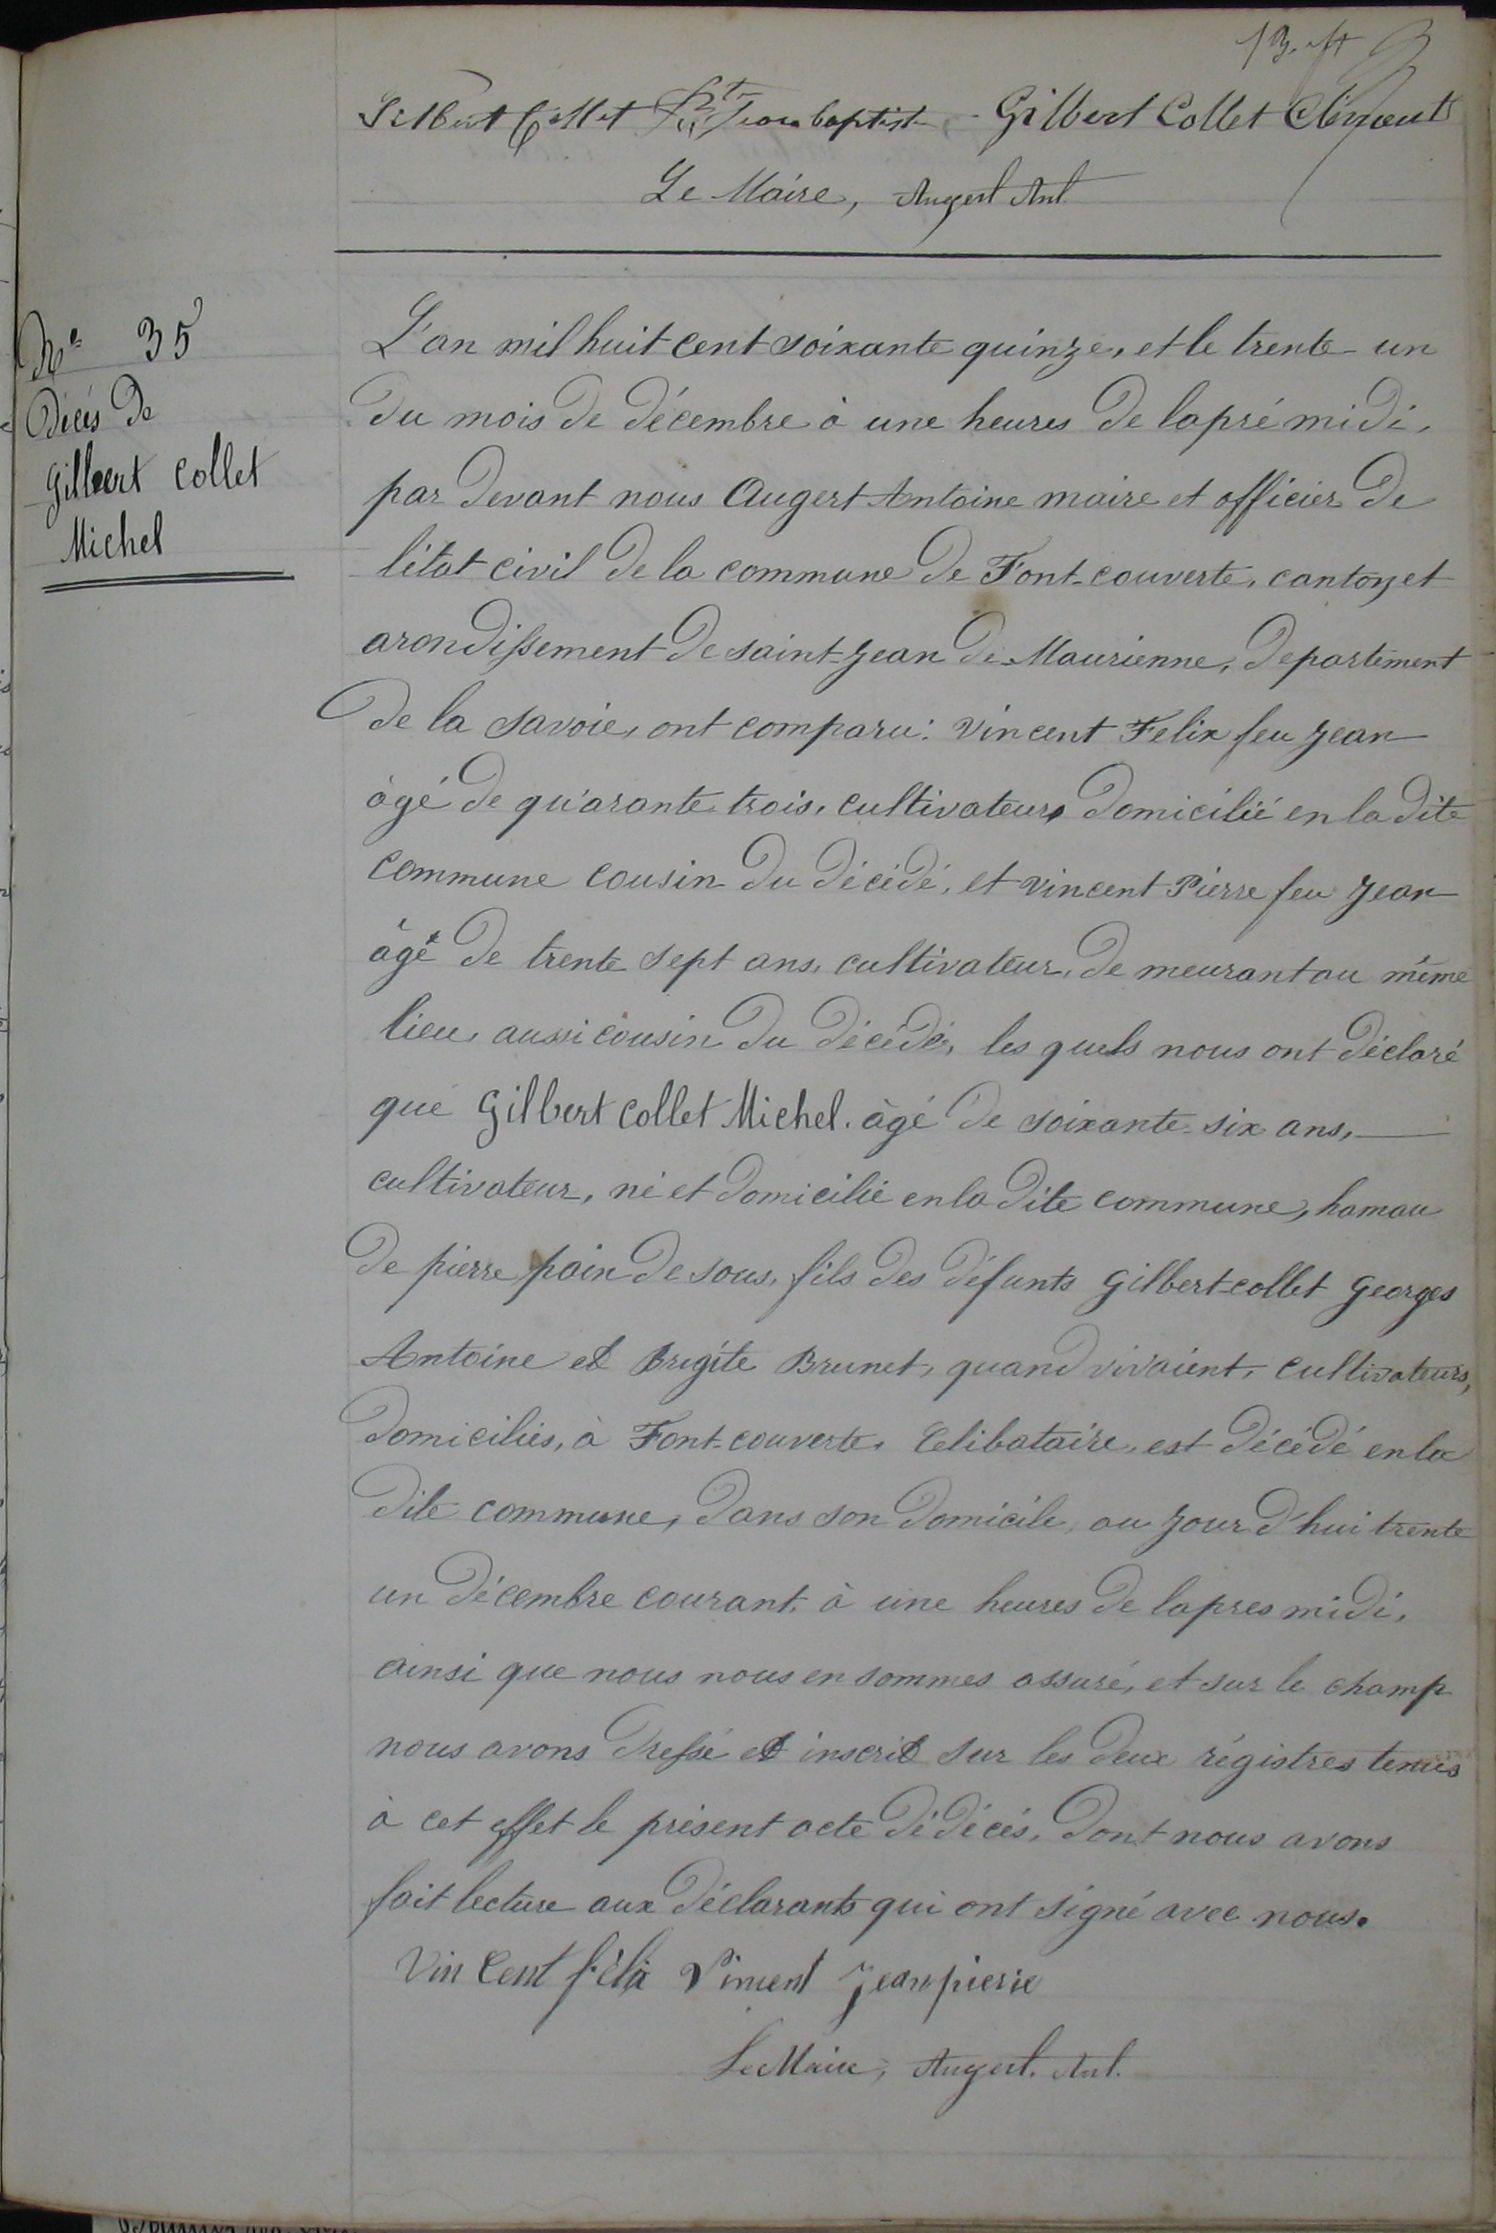 Gilbert Collet Jean baptiste Gilbert Collet Clément
Le Maire, Augert Ant.
N° 35
Décès de
Gilbert Collet
Michel
L'an mil huit cent soixante quinze, et le trente un
du mois de décembre à une heures de lapré midi,
par devant nous Augert Antoine maire et officier de
l'état civil de la commune de Font-couverte, canton et
arondissement de saint-Jean de Maurienne, département
de la Savoie, ont comparu: Vincent Felix feu Jean
âgé de quarante trois, cultivateur, domicilié en la dite
commune cousin du décédé, et Vincent Pierre feu Jean
âgé de trente sept ans, cultivateur, de meurant au même
lieu, aussi cousin du décédé, les quels nous ont déclaré
que Gilbert Collet Michel, âgé de soixante-six ans,
cultivateur, né et domicilié en la dite commune, hamau
de pierre pain de sous, fils des défunts Gilbert-collet Georges
Antoine et Brigite Brunet, quand vivaient, cultivateurs,
domiciliés, à Font-couverte, Celibataire, est décédé en la
dite commune, dans son domicile, au jour d'hui trente
un décembre courant, à une heures de lapres midi,
ainsi que nous nous en sommes assuré, et sur le champ
nous avons dressé et inscrit sur les deux régistres tenus
à cet effet le présent acte dé décés, dont nous avons
fait lecture aux déclarants qui ont signé avec nous.
Vincent félix Vincent Jean pierre
Le Maire, Augert. Ant.